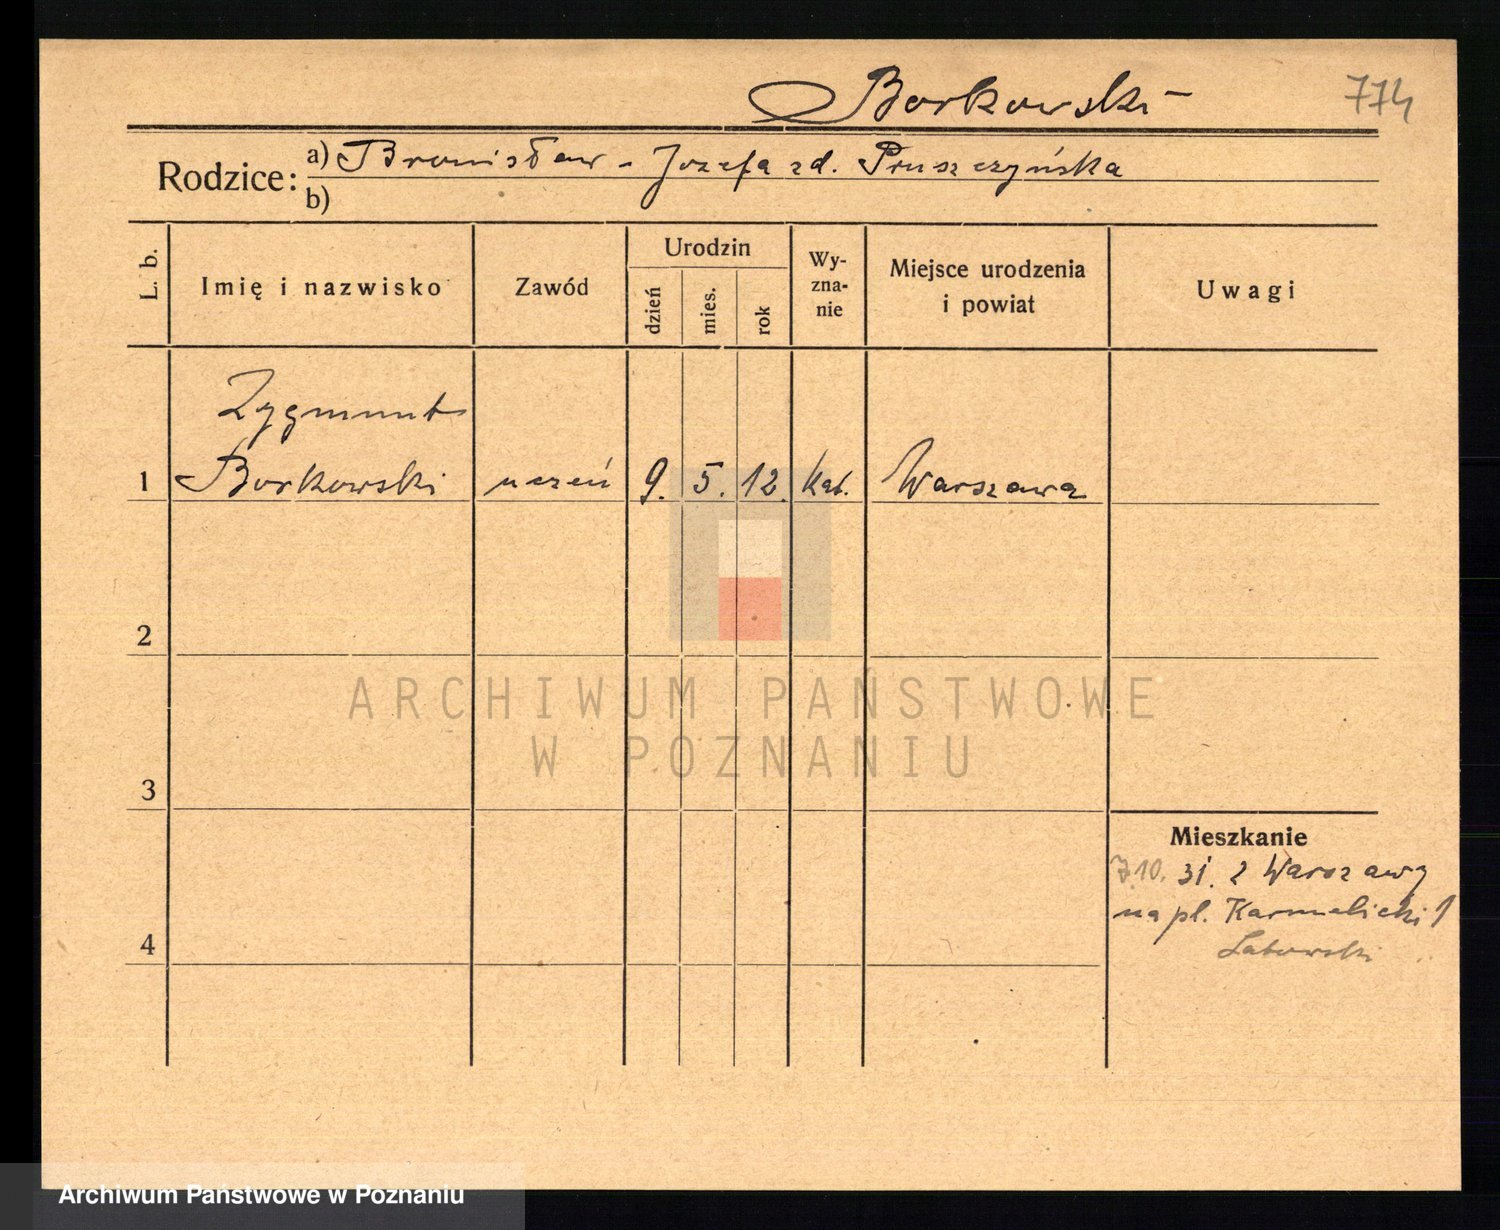 Borkowski 774
Rodzice: a) Bronisław - Jozefa zd. Pruszczyńska
b)
L. b. Imię i nazwisko Zawód Urodzin dzień mies. rok Wy-zna-nie Miejsce urodzenia i powiat Uwagi
Zygmunt
1 Borkowski uczeń 9. 5. 12. kat. Warszawa
2
ARCHIWUM PAŃSTWOWE
W POZNANIU
3
Mieszkanie
7.10. 31. z Warszawy
na pl. Karmelicki 1
4
Archiwum Państwowe w Poznaniu